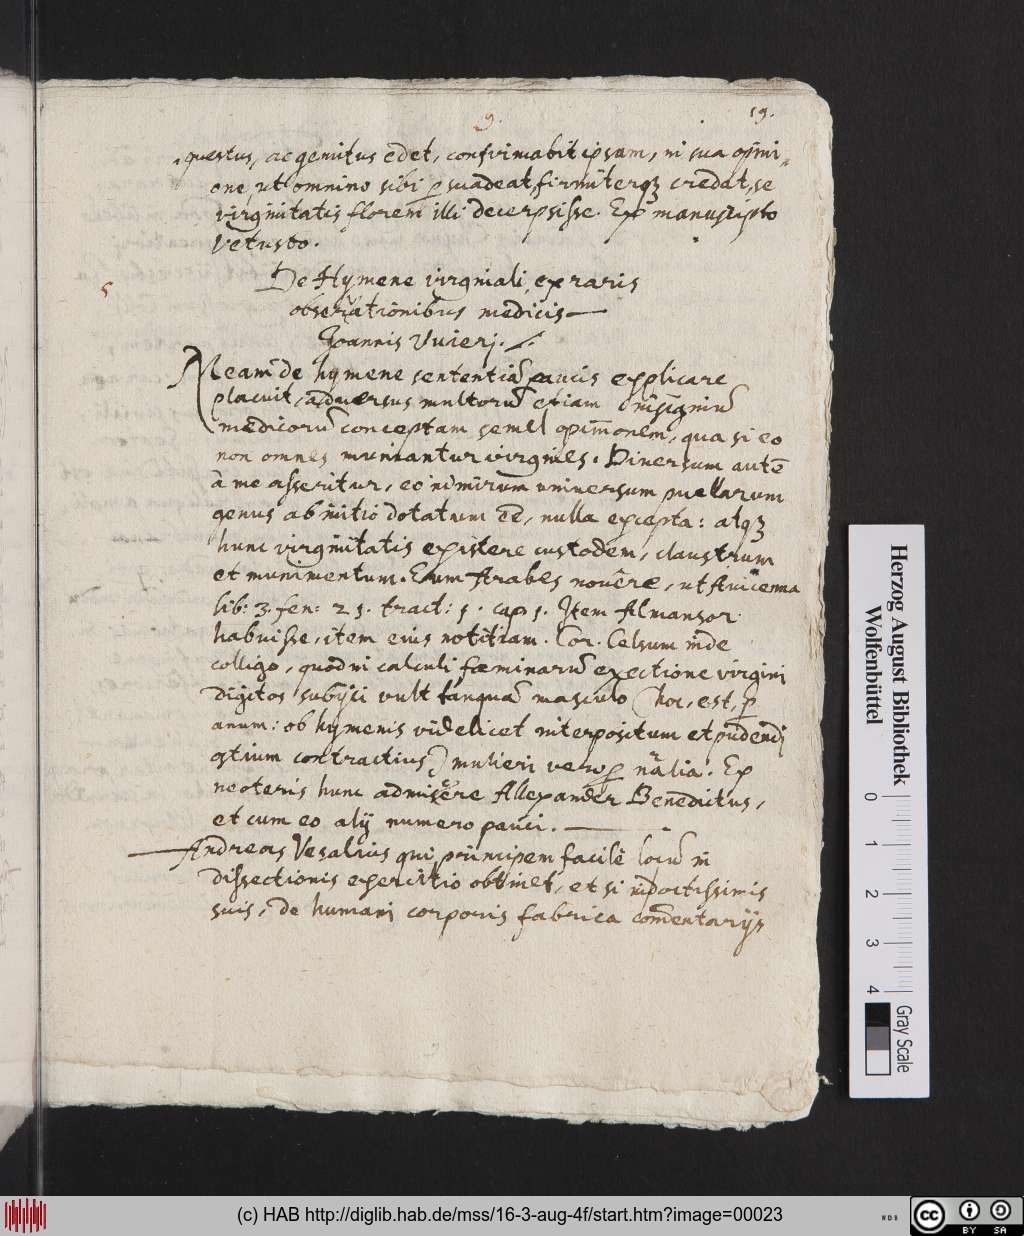 9.
19.
questus, ac gemitus edet, confirmabit ipsum, in sua opini-
one, ut omnino sibi p suadeat, firmiterqꝫ credat, se
virginitatis florem illi decerpsisse. Ex manuscripto
vetusto.
De Hymene virginali, ex raris
observationibus medicis
5
Joannis Vuieri.
Meam de hymene sententiā paucis explicare
placuit, adversus multorū etiam insigniū
medicorū conceptam semel opinionem, qua si eo
non omnes muniantur virgines. Diversum autē
à me asseritur, eo nimirum universum puellarum
genus ab initio dotatum eē, nulla excepta: atqꝫ
hunc virginitatis existere custodem, claustrum
et munimentum. Eum Arabes novēre, ut Avicenna
lib: 3. fen: 21. tract: 1. cap 1. Item Almansor
habuisse, item eius notitiam. Cor. Celsum inde
colligo, quod in calculi fœminarū exectione virgini
digitos subijci vult tanquā masculo (hoc, est, p
anum: ob hymenis videlicet interpositum et pudendi
ostium contractius) mulieri vero p nālia. Ex
neotericis hunc admisēre Allexander Benedictus,
et cum eo alij numero pauci.
Andreas Vesalius qui principem facilè locū in
dissectionis exercitio obtinet, et si in doctissimis
suis, de humani corporis fabrica comentarijs
Herzog August Bibliothek
Wolfenbüttel
0 1 2 3 4
Gray Scale
(c) HAB http://diglib.hab.de/mss/16-3-aug-4f/start.htm?image=00023
WDB
cc
BY SA